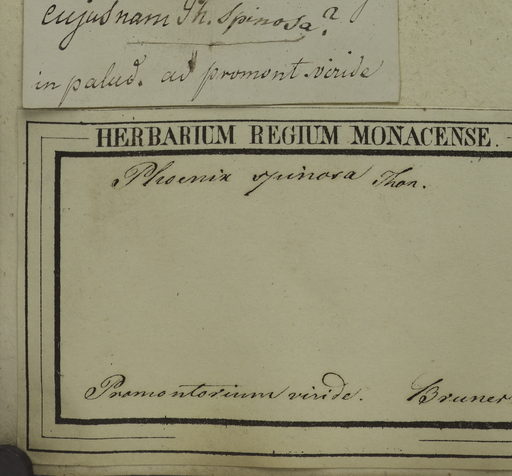 cujusnam Ph. spinosa?
in palud. ad promont. viride
HERBARIUM REGIUM MONACENSE.
Phoenix spinosa Thon.
Promontorium viride. Bruner